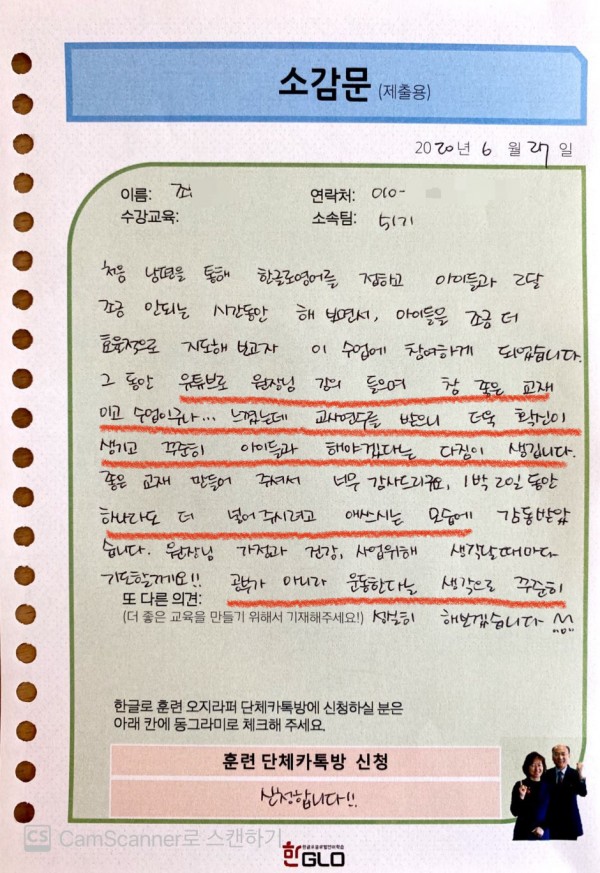 소감문 (제출용)
2020년 6월 27일
이름: 최
연락처: 010-
수강교육:
소속팀: 51기
처음 남편을 통해 한글로영어를 접하고 아이들과 2달
조금 안되는 시간동안 해 보면서, 아이들을 조금 더
효율적으로 지도해 보고자 이 수업에 참여하게 되었습니다.
그 동안 유튜브로 원장님 강의 들으며 참 좋은 교재
이고 수업이구나... 느꼈는데 교사연수를 받으니 더욱 확신이
생기고 꾸준히 아이들과 해야겠다는 다짐이 생깁니다.
좋은 교재 만들어 주셔서 너무 감사드리구요, 1박 2일 동안
하나라도 더 넣어주시려고 애쓰시는 모습에 감동받았
습니다. 원장님 가정과 건강, 사업위해 생각날때마다
기도할게요!! 공부가 아니라 운동한다는 생각으로 꾸준히
또 다른 의견:
(더 좋은 교육을 만들기 위해서 기재해주세요!) 성실히 해보겠습니다
한글로 훈련 오지라퍼 단체카톡방에 신청하실 분은
아래 칸에 동그라미로 체크해 주세요.
훈련 단체카톡방 신청
신청합니다!!
CS CamScanner로 스캔하기
한GLO